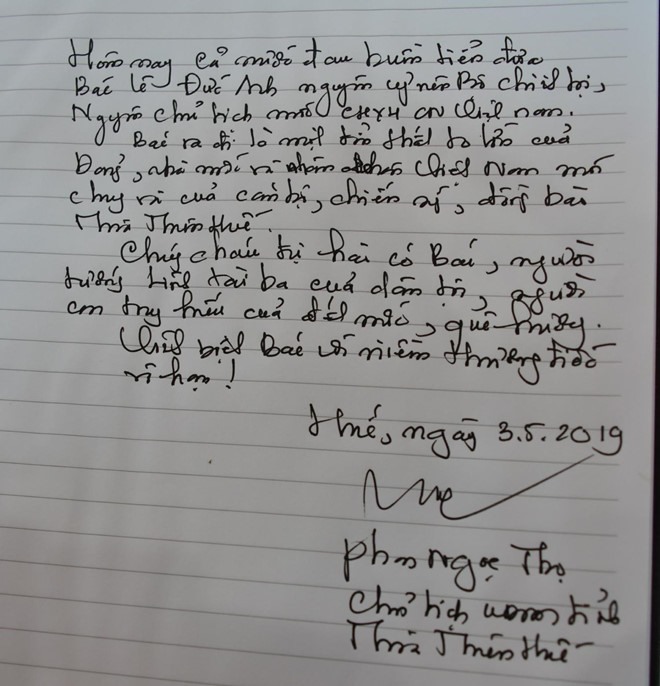 Hôm nay cả nước đau buồn tiễn đưa
Bác Lê Đức Anh nguyên Uỷ viên Bộ Chính trị,
Nguyên chủ tịch nước CHXHCN Việt Nam.
Bác ra đi là một tổn thất to lớn của
Đảng, nhà nước và nhân dân Việt Nam nói
chung và của cán bộ, chiến sỹ, đồng bào
Thừa Thiên Huế.
Chúng cháu tự hào có Bác, người
tướng lĩnh tài ba của dân tộc, người
con trung hiếu của đất nước, quê hương.
Vĩnh biệt Bác với niềm thương tiếc
vô hạn!
Huế, ngày 3.5.2019
Phan Ngọc Thọ
Chủ tịch UBND tỉnh
Thừa Thiên Huế